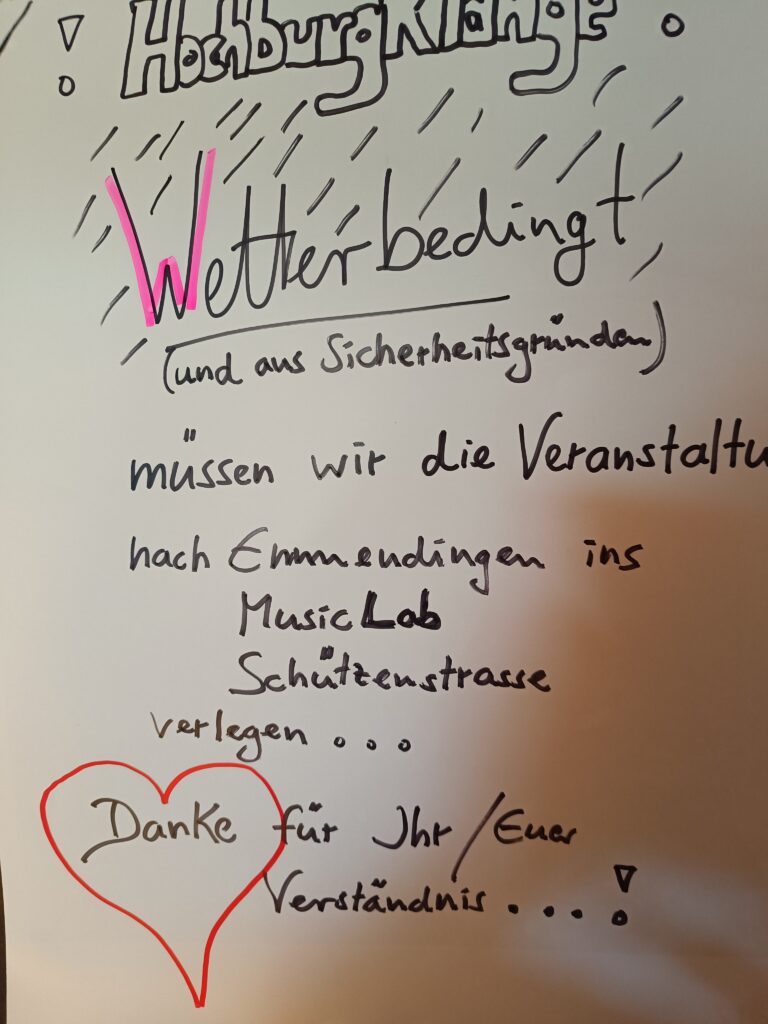 ! HochburgKlänge !
Wetterbedingt
(und aus Sicherheitsgründen)
müssen wir die Veranstaltu
nach Emmendingen ins
MusicLab
Schützenstrasse
verlegen . . .
Danke für Ihr / Euer
Verständnis . . . !